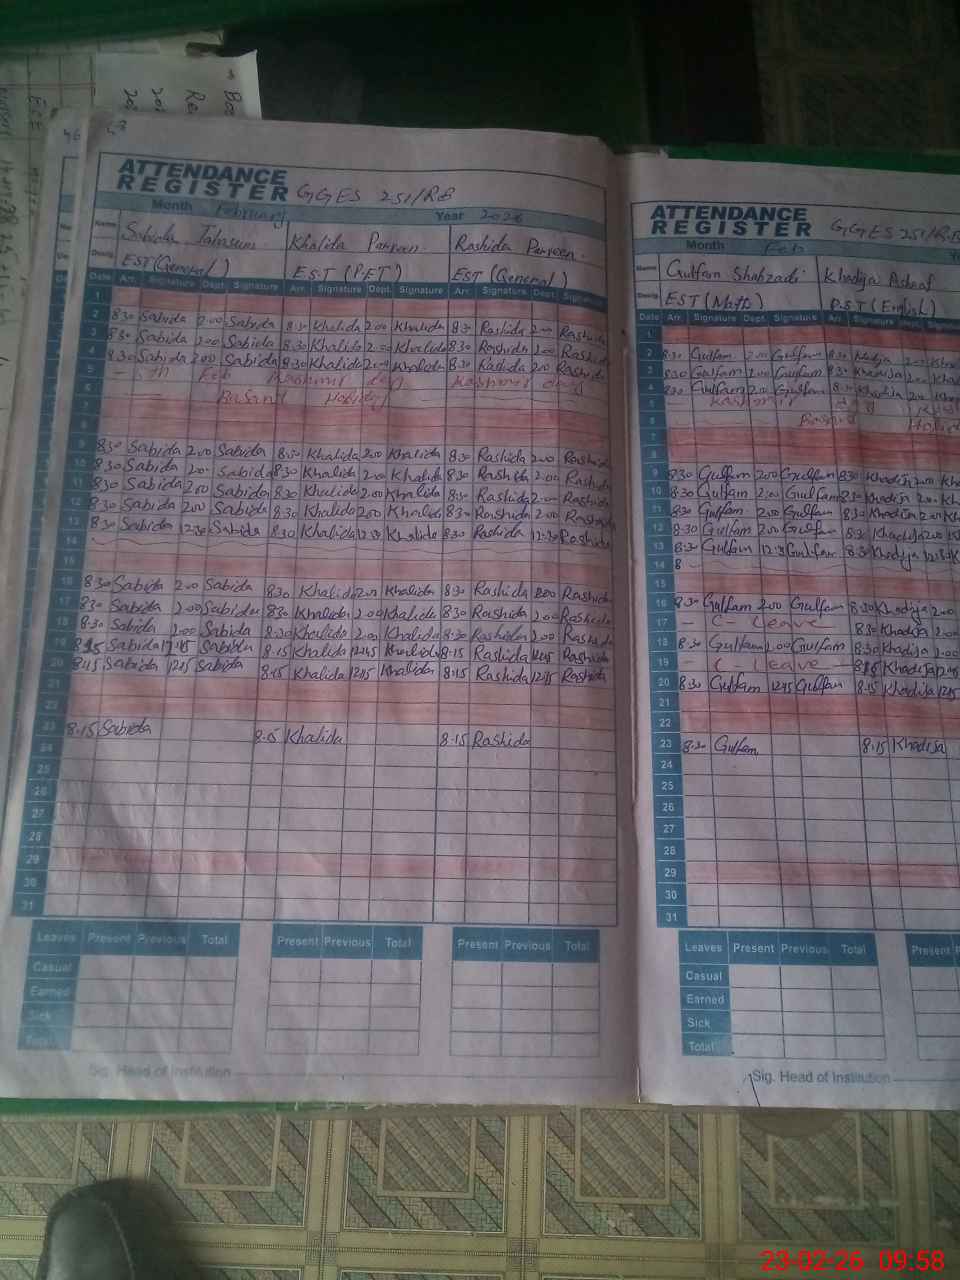 ATTENDANCE
REGISTER GGES 251/RB
Month February Year 2026
Name Sabida Tabasum Khalida Parveen Rashida Parveen
Desig EST (General) EST (PET) EST (General)
Date Arr. Signature Dept. Signature Arr. Signature Dept. Signature Arr. Signature Dept. Signature
1
2 8:30 Sabida 2:00 Sabida 8:30 Khalida 2:00 Khalida 8:30 Rashida 2:00 Rashida
3 8:30 Sabida 2:00 Sabida 8:30 Khalida 2:00 Khalida 8:30 Rashida 2:00 Rashida
4 8:30 Sabida 2:00 Sabida 8:30 Khalida 2:00 Khalida 8:30 Rashida 2:00 Rashida
5 Feb Kashmir day Kashmir day
6 Basant Holiday
7
8
9 8:30 Sabida 2:00 Sabida 8:30 Khalida 2:00 Khalida 8:30 Rashida 2:00 Rashida
10 8:30 Sabida 2:00 Sabida 8:30 Khalida 2:00 Khalida 8:30 Rashida 2:00 Rashida
11 8:30 Sabida 2:00 Sabida 8:30 Khalida 2:00 Khalida 8:30 Rashida 2:00 Rashida
12 8:30 Sabida 2:00 Sabida 8:30 Khalida 2:00 Khalida 8:30 Rashida 2:00 Rashida
13 8:30 Sabida 12:30 Sabida 8:30 Khalida 12:30 Khalida 8:30 Rashida 12:30 Rashida
14
15
16 8:30 Sabida 2:00 Sabida 8:30 Khalida 2:00 Khalida 8:30 Rashida 2:00 Rashida
17 8:30 Sabida 2:00 Sabida 8:30 Khalida 2:00 Khalida 8:30 Rashida 2:00 Rashida
18 8:30 Sabida 2:00 Sabida 8:30 Khalida 2:00 Khalida 8:30 Rashida 2:00 Rashida
19 8:15 Sabida 12:45 Sabida 8:15 Khalida 12:45 Khalida 8:15 Rashida 12:45 Rashida
20 8:15 Sabida 12:15 Sabida 8:15 Khalida 12:15 Khalida 8:15 Rashida 12:15 Rashida
21
22
23 8:15 Sabida 8:15 Khalida 8:15 Rashida
24
25
26
27
28
29
30
31
Leaves Present Previous Total Present Previous Total Present Previous Total
Casual
Earned
Sick
Total
Sig. Head of Institution
ATTENDANCE
REGISTER GGES 251/RB
Month Feb
Name Gulfam Shahzadi Khadija Ashraf
Desig EST (Math) PST (English)
Date Arr. Signature Dept. Signature Arr. Signature Dept.
1
2 8:30 Gulfam 2:00 Gulfam 8:30 Khadija 2:00
3 8:30 Gulfam 2:00 Gulfam 8:30 Khadija 2:00
4 8:30 Gulfam 2:00 Gulfam 8:30 Khadija 2:00
5 Kashmir day
6 Basant
7
8
9 8:30 Gulfam 2:00 Gulfam 8:30 Khadija 2:00
10 8:30 Gulfam 2:00 Gulfam 8:30 Khadija 2:00
11 8:30 Gulfam 2:00 Gulfam 8:30 Khadija 2:00
12 8:30 Gulfam 2:00 Gulfam 8:30 Khadija 2:00
13 8:30 Gulfam 12:30 Gulfam 8:30 Khadija 12:30
14 8
15
16 8:30 Gulfam 2:00 Gulfam 8:30 Khadija 2:00
17 - C - Leave - 8:30 Khadija 2:00
18 8:30 Gulfam 2:00 Gulfam 8:30 Khadija 2:00
19 - C - Leave - 8:15 Khadija
20 8:30 Gulfam 12:15 Gulfam 8:15 Khadija 12:15
21
22
23 8:30 Gulfam 8:15 Khadija
24
25
26
27
28
29
30
31
Leaves Present Previous Total Present
Casual
Earned
Sick
Total
Sig. Head of Institution
23-02-26 09:58